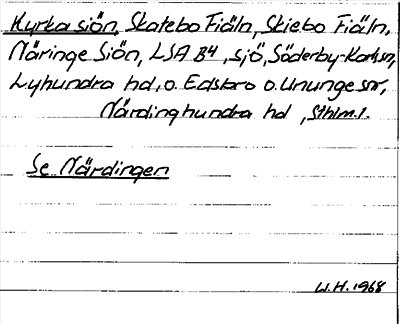 Kyrka siön, Skatebo Fiäln, Skiebo Fiäln,
Näringe Siön, LSA B4, sjö, Söderby-Karlsn,
Lyhundra hd, o. Edsbro o. Ununge snr,
Närdinghundra hd, Sthlm.l.
Se Närdingen
W.H. 1968